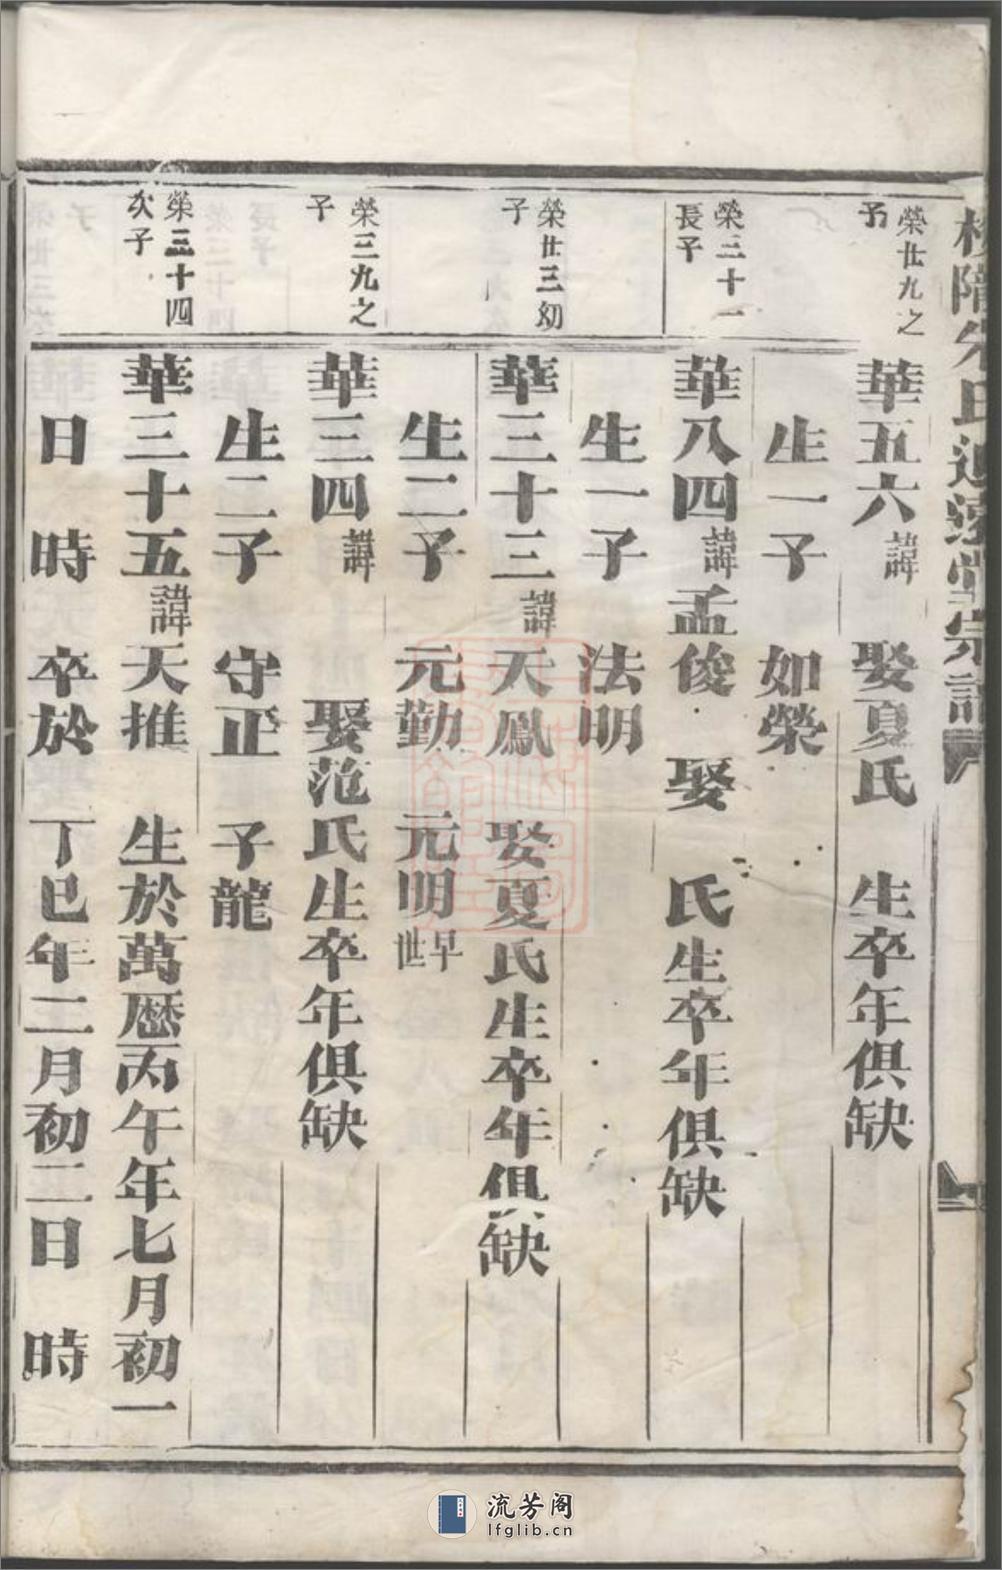 榮廿九之
子
華五六諱 娶夏氏 生卒年俱缺
生一子 如榮
榮三十一
長子
華八四諱孟俊 娶 氏生卒年俱缺
生一子 法明
榮廿三幼
子
華三十三諱天鳳 娶夏氏生卒年俱缺
生二子 元勤 元明早世
榮三九之
子
華三四諱 娶范氏生卒年俱缺
生二子 守正 子龍
榮三十四
次子
華三十五諱天推 生於萬歷丙午年七月初一
日 時 卒於 丁巳年二月初二日 時
流芳阁
lfglib.cn